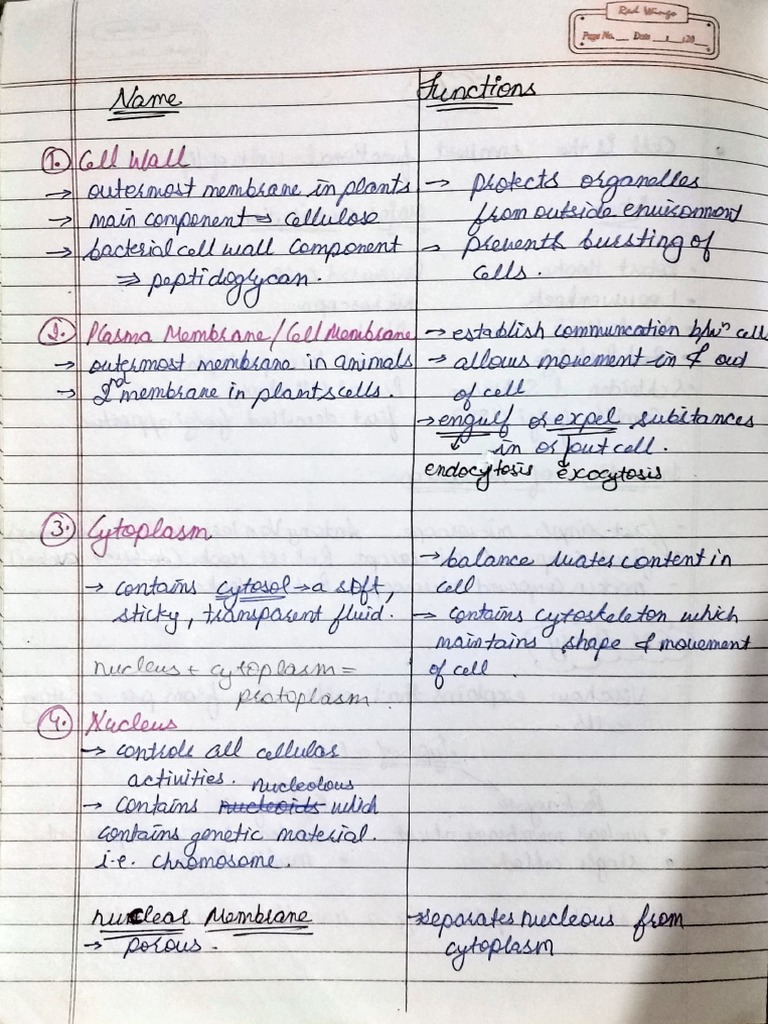 Red Wings
Page No. Date / /20
Name
Functions
1. Cell Wall
→ outermost membrane in plants
→ main component ⇒ cellulose
→ bacterial cell wall component
⇒ peptidoglycan.
→ protects organelles
from outside environment
→ prevents bursting of
cells.
2. Plasma Membrane/Cell Membrane
→ outermost membrane in animals
→ 2nd membrane in plants cells.
→ establish communcation b/wn cells
→ allows movement in & out
of cell
→ engulf or expel substances
in or out cell.
endocytosis exocytosis
3. Cytoplasm
→ contains cytosol → a soft,
sticky, transparent fluid.
nucleus + cytoplasm =
protoplasm.
→ balance water content in
cell
→ contains cytoskeleton which
maintains shape & movement
of cell.
4. Nucleus
→ controls all cellular
activities. nucleolous
→ contains nucleoids which
contains genetic material.
i.e. chromosome.
nuclear Membrane
→ porous.
→ separates nucleous from
cytoplasm